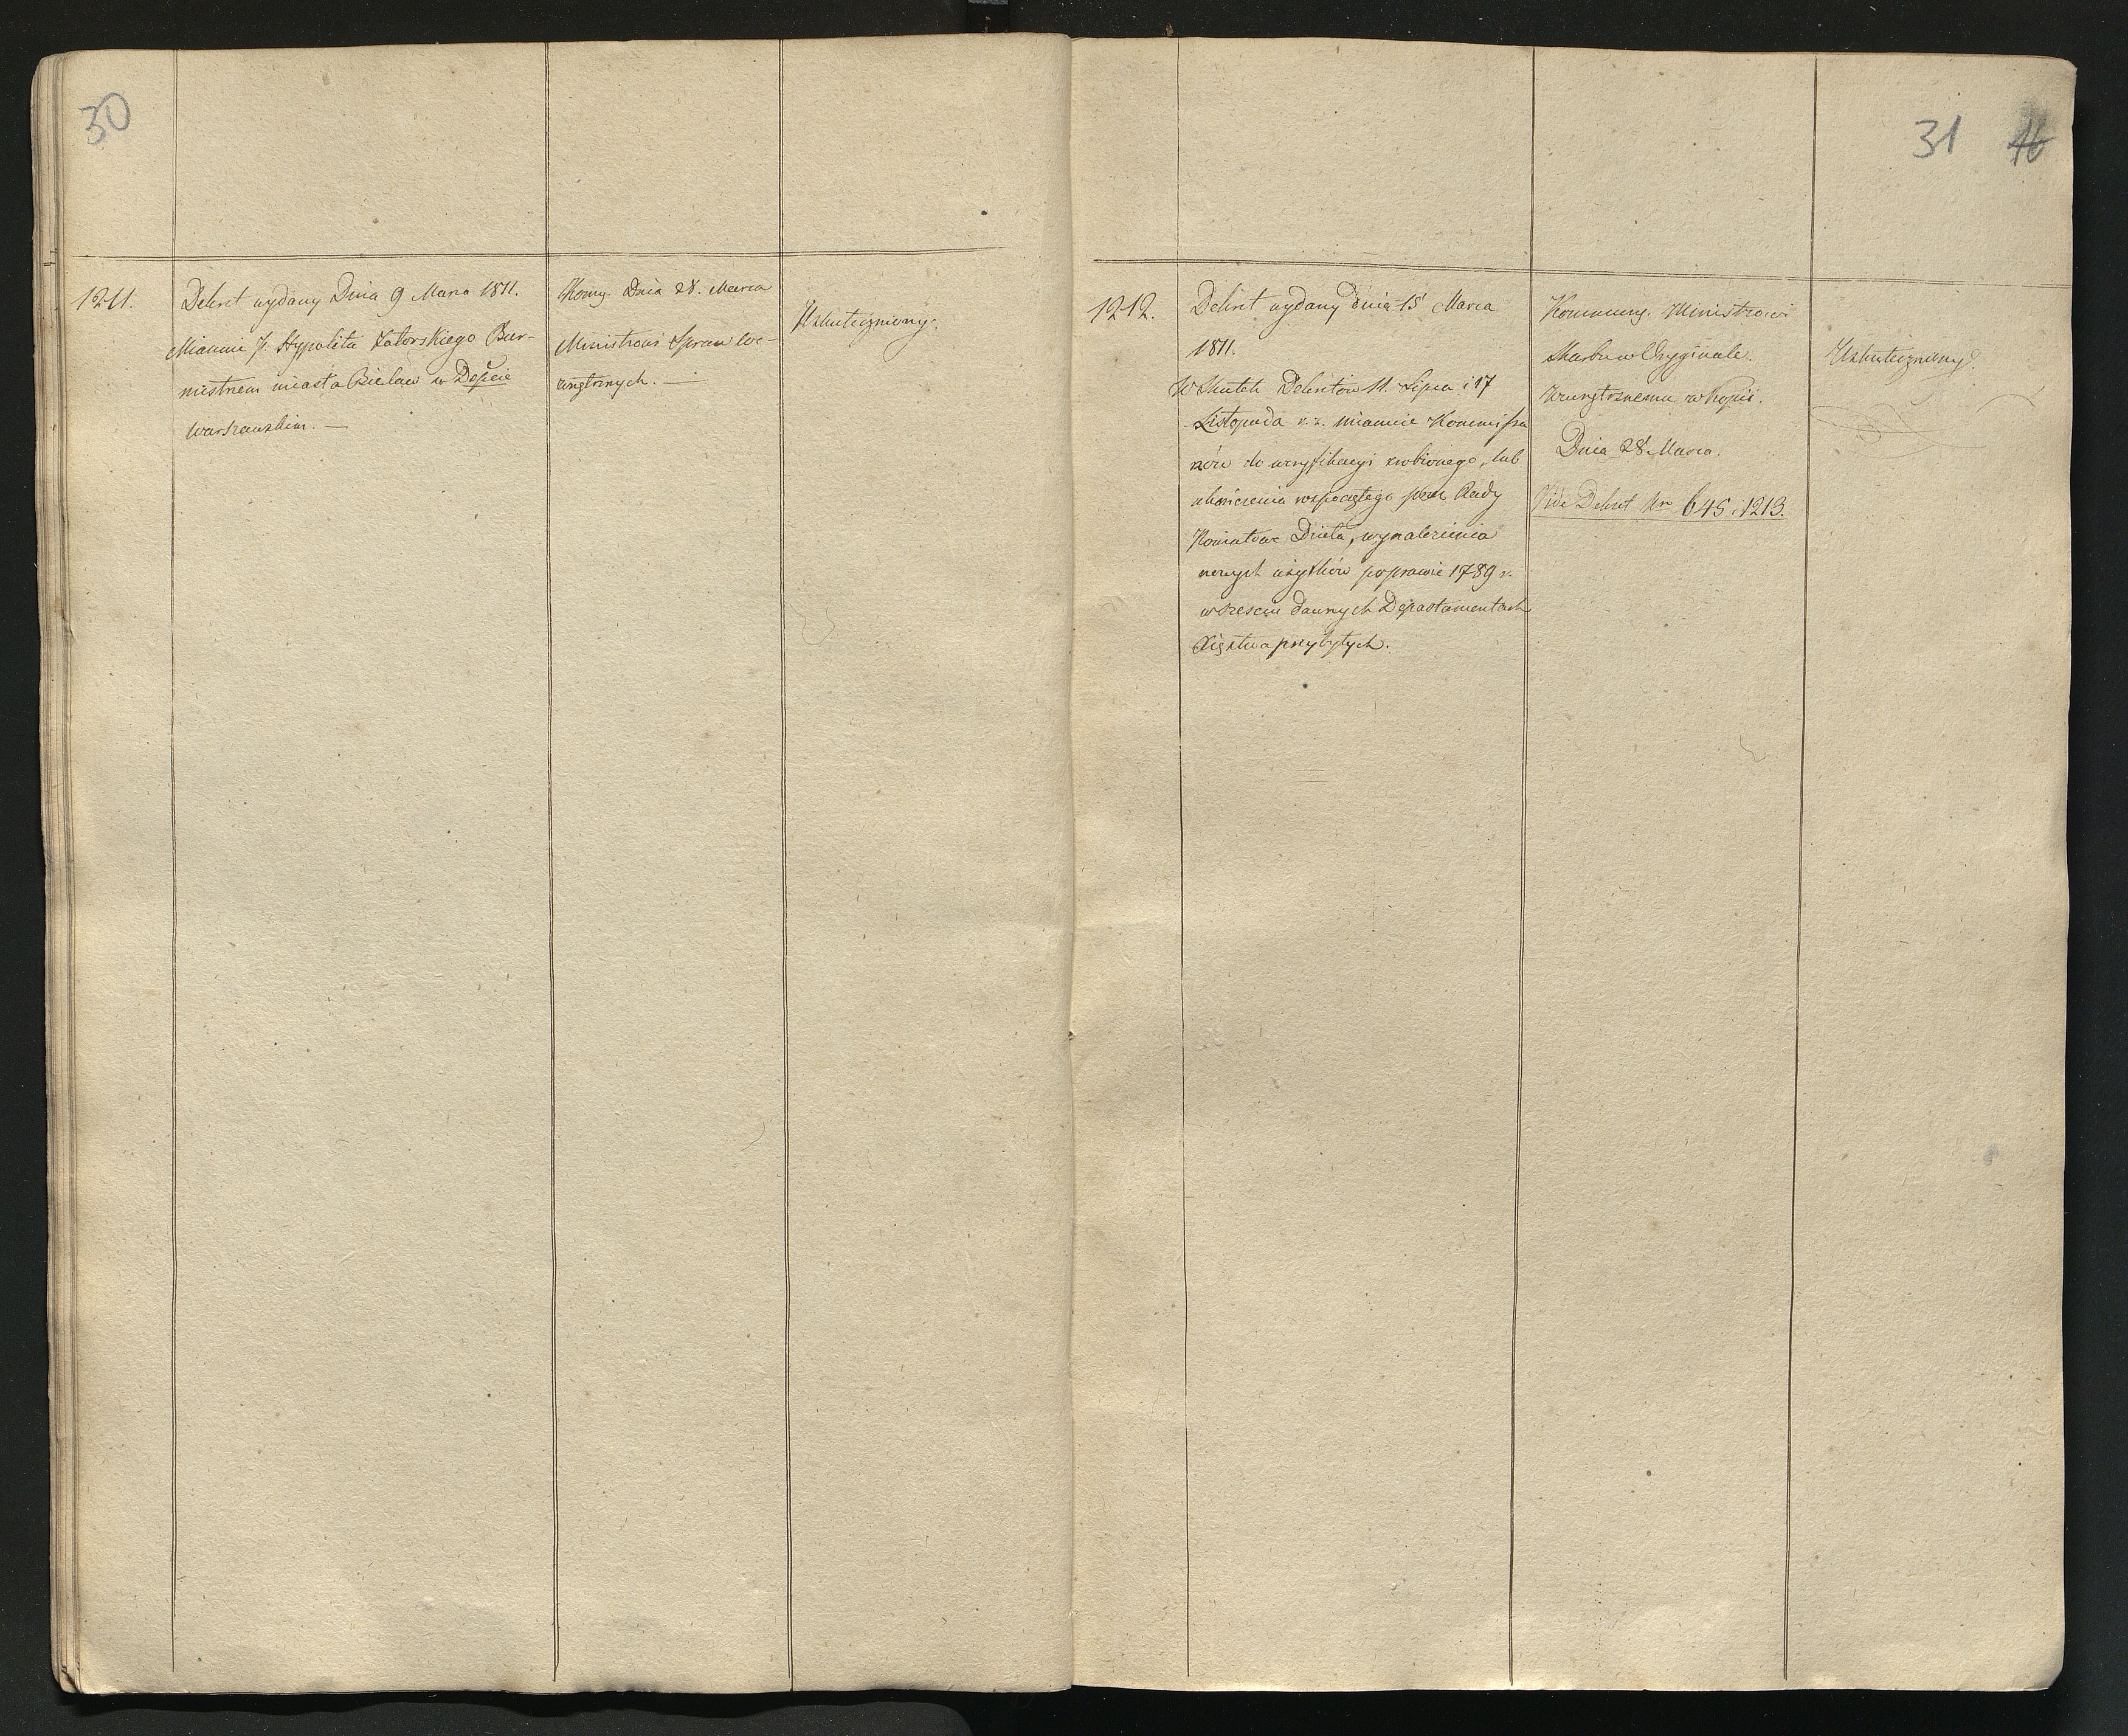 30
1211.
Dekret wydany Dnia 9 Marca 1811.
Mianuie P. Hypolita Zatorskiego Bur-
mistrzem miasta Bielaw w Depcie
Warszawskim. —
Komu. Dnia 28. Marca
Ministrowi Spraw We-
wnętrznych. —
Uskuteczniony.
31 16
1212.
Dekret wydany dnia 15 Marca
1811.
W Skutek Dekretów 11. Lipca i 17
Listopada r. z. mianuie Kommissa
rzów do weryfikacyi zrobionego, lub
ukończenia rozpoczętego przez Rady
Powiatowe Dzieła, wynalezienia
nowych użytków po prawie 1789 r.
w sześciu dawnych Departamentach
Xięstwa przybyłych.
Kommuny. Ministrowi
Skarbu w Oryginale.
Wewnętrznemu w kopii.
Dnia 28 Marca.
Vide Dekret Nr 645. i 1213.
Uskuteczniony.